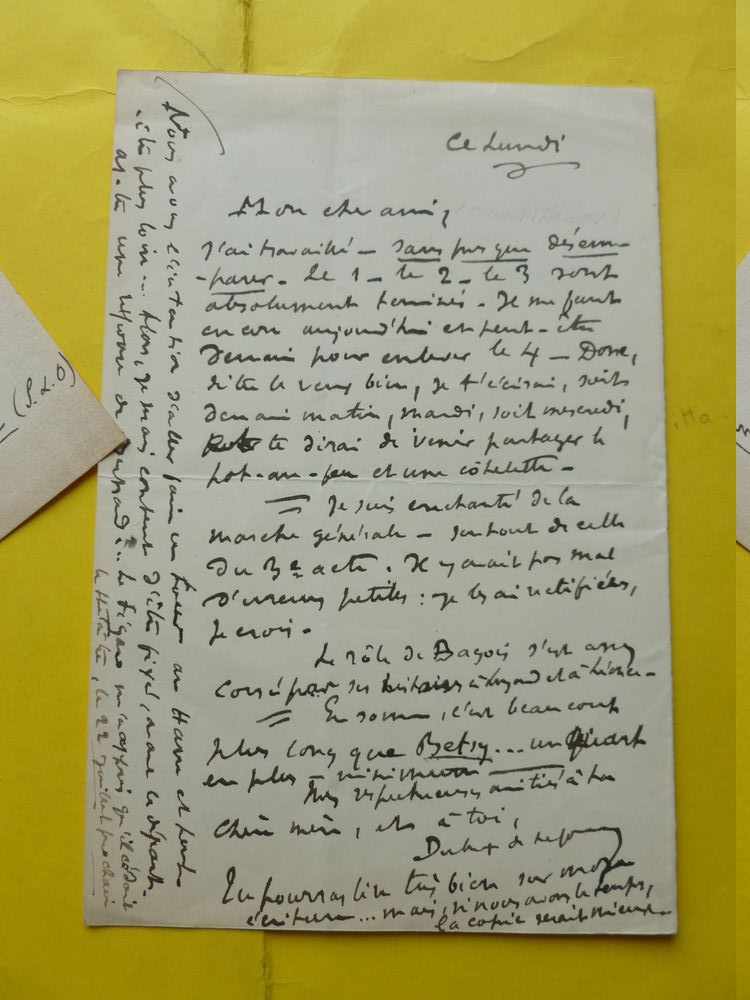 Ce Lundi
Mon cher ami,
J'ai travaillé — sans presque désem-
-parer. Le 1 — le 2 — le 3 sont
absolument terminés — Il me faut
encore aujourd'hui et peut-être
demain pour enlever le 4 — Donc,
si tu le veux bien, je t'écrirai, soit
demain matin, mardi, soit mercredi,
te dirai de venir partager le
pot-au-feu et une côtelette —
Je suis enchanté de la
marche générale — surtout de celle
du 3e acte. Il y avait pas mal
d'erreurs petites : je les ai rectifiées,
je crois.
Le rôle de Bagois s'est assez
corsé par ses
En somme, c'est beaucoup
plus long que Betsy... un quart
en plus — minimum
Mes respectueuses amitiés à ta
chère mère, et à toi,
Tu pourras lire très bien sur mon
écriture... mais, si nous avons le temps,
la copie serait mieux.
Nous avons l'intention d'aller faire un tour au Havre et peut-
-être plus loin... Alors, je serais content d'être fixé, avant ce départ.
as-tu une réponse de
le théâtre, le 22 juillet prochain
(S.L.D)